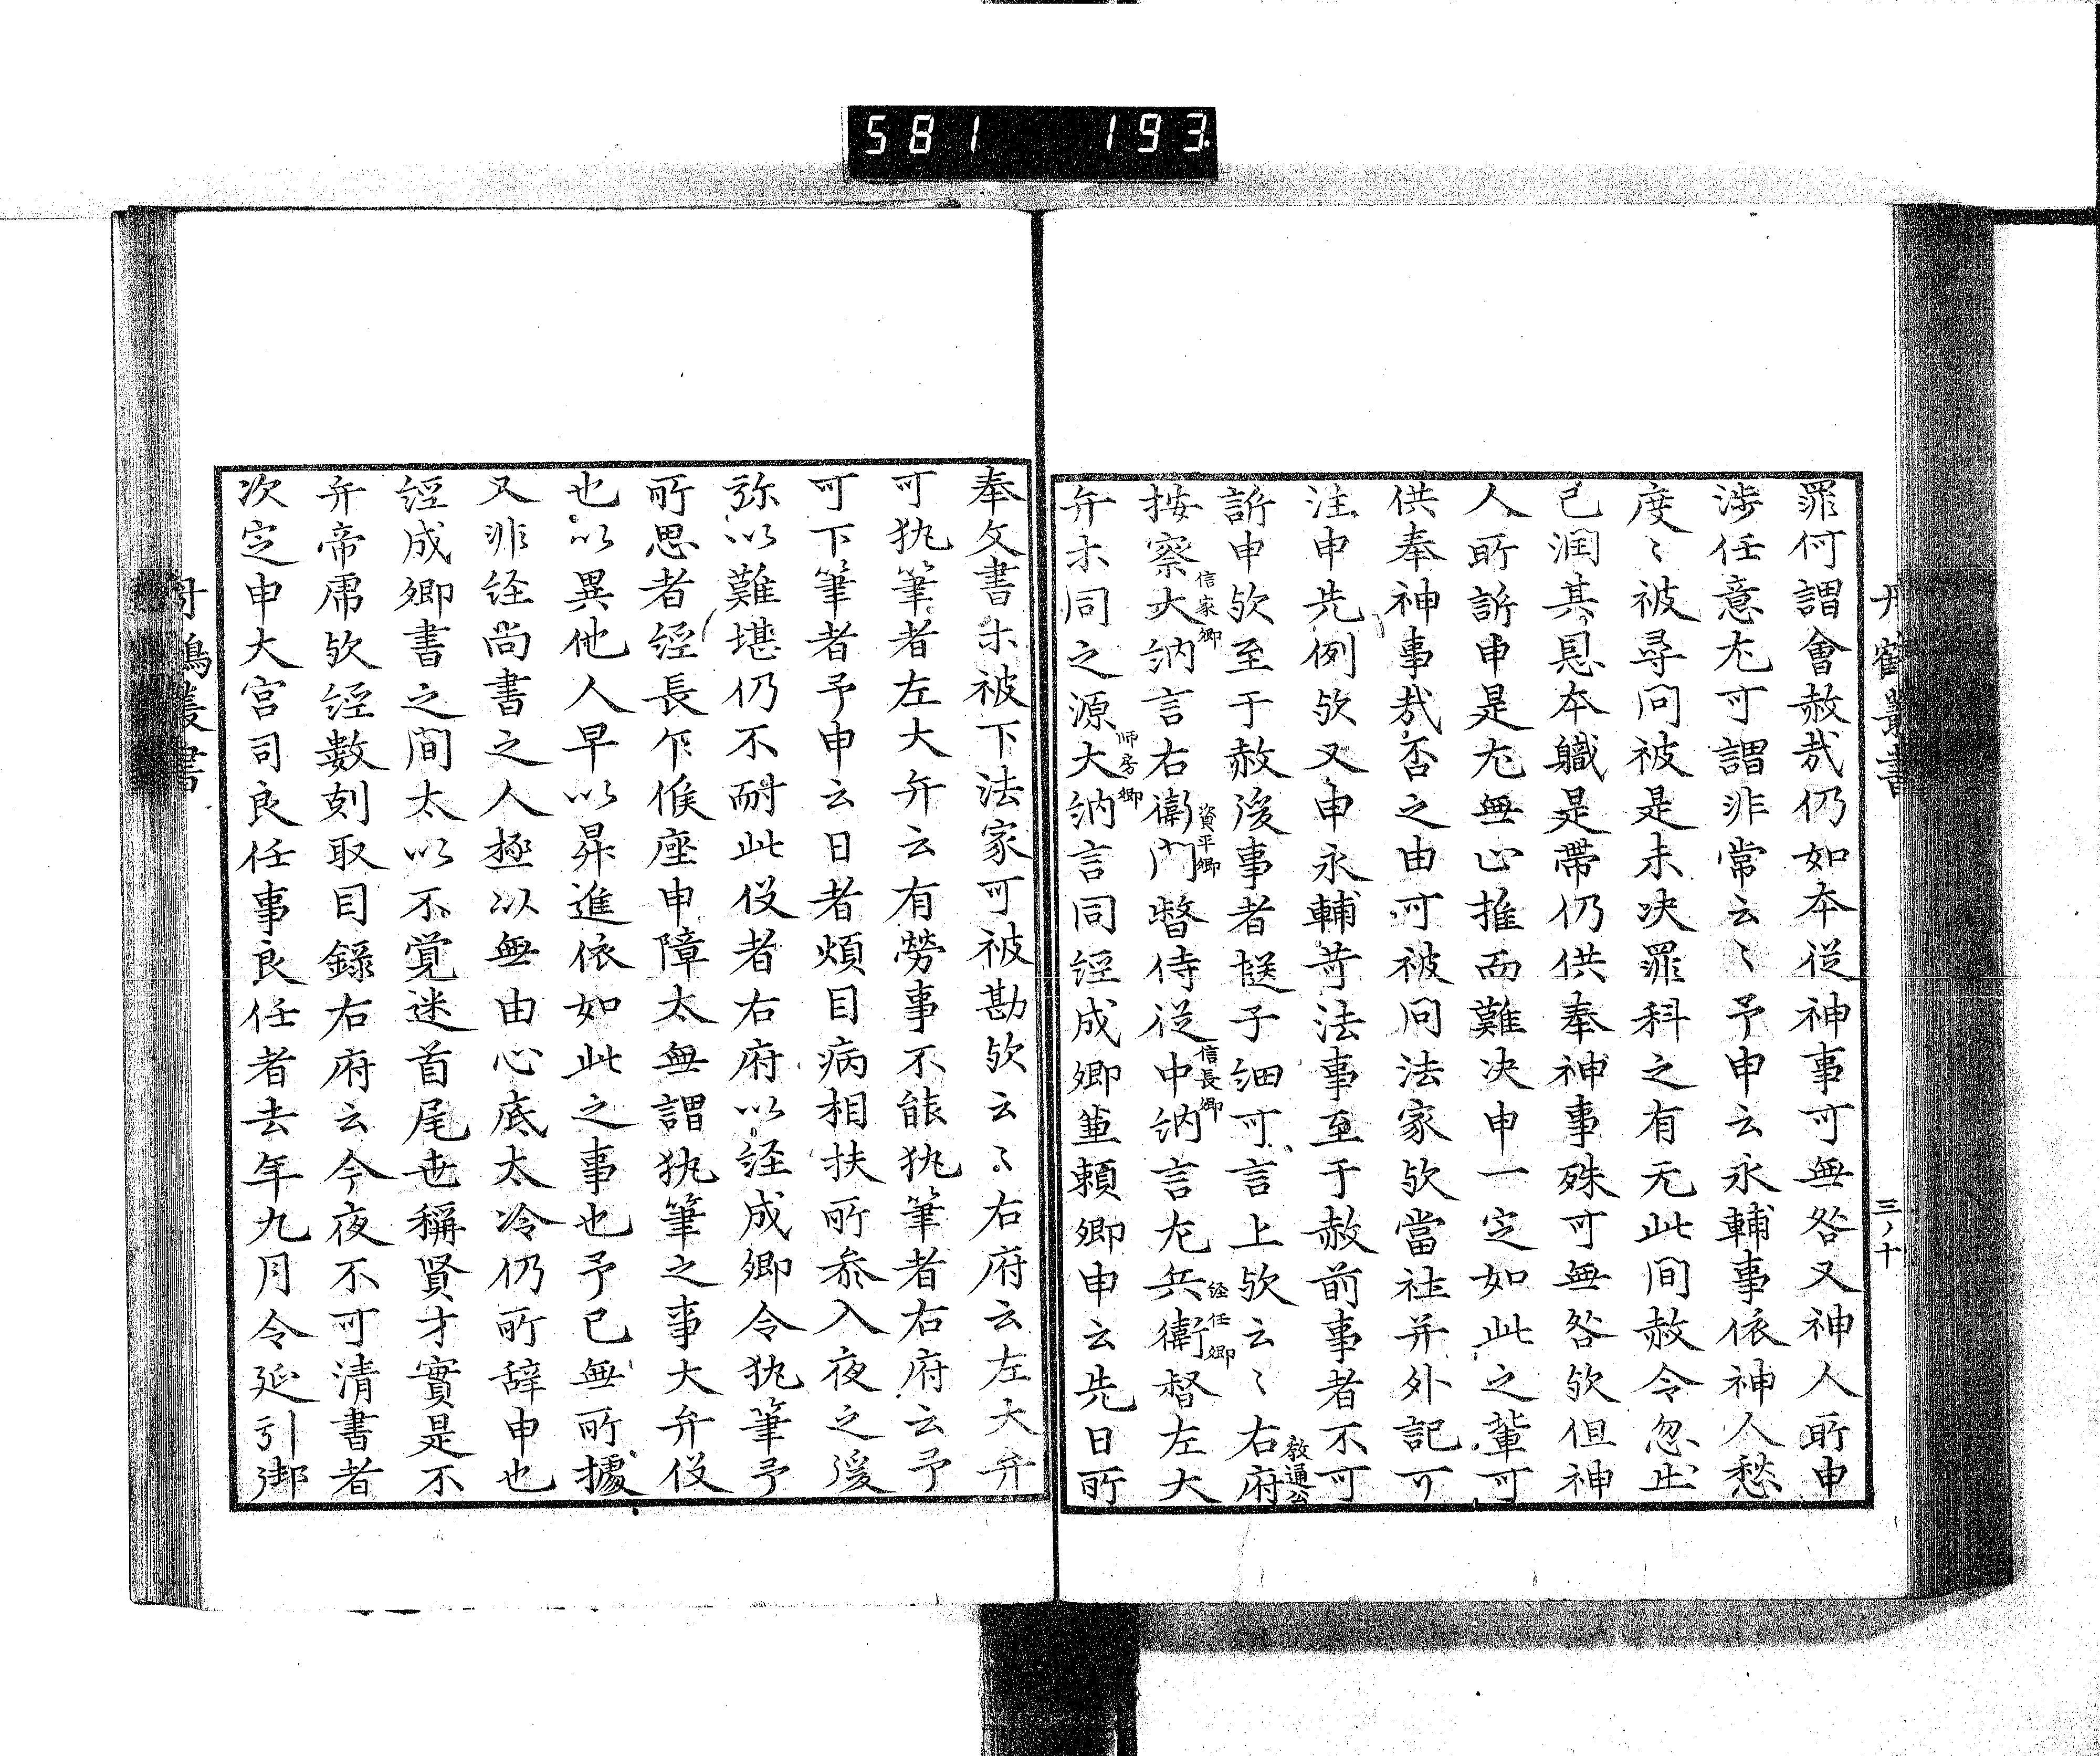 581 193
丹鶴叢書
三ノ十
罪何謂會赦哉仍如本従神事可無咎又神人所申
渉任意尤可謂非常云々予申云永輔事依神人愁
度々被尋問被是未决罪科之有无此間赦令忽出
已潤其恩本職是帶仍供奉神事殊可無咎欤但神
人所訴申是尤無止推而難决申一定如此之輩可
供奉神事哉否之由可被問法家欤當社并外記可
注申先例欤又申永輔苛法事至于赦前事者不可
訴申欤至于赦後事者慥子細可言上欤云々右府
教通公
按察大納言右衛門督侍従中納言左兵衛督左大
信家卿
資平卿
信長卿
経任卿
弁朩同之源大納言同経成卿並頼卿申云先日所
師房卿
奉文書朩被下法家可被勘欤云々右府云左大弁
可執筆者左大弁云有勞事不能執筆者右府云予
可下筆者予申云日者煩目病相扶所叅入夜之後
弥以難堪仍不耐此役者右府以経成卿令執筆予
所思者経長乍候座申障太無謂執筆之事大弁役
也以異他人早以昇進依如此之事也予已無所據
又非経尚書之人極以無由心底太冷仍所辞申也
経成卿書之間太以不覚迷首尾世稱賢才實是不
弁帝帍欤経數刻取目錄右府云今夜不可清書者
次定申大宮司良任事良任者去年九月令延引御
丹鶴叢書